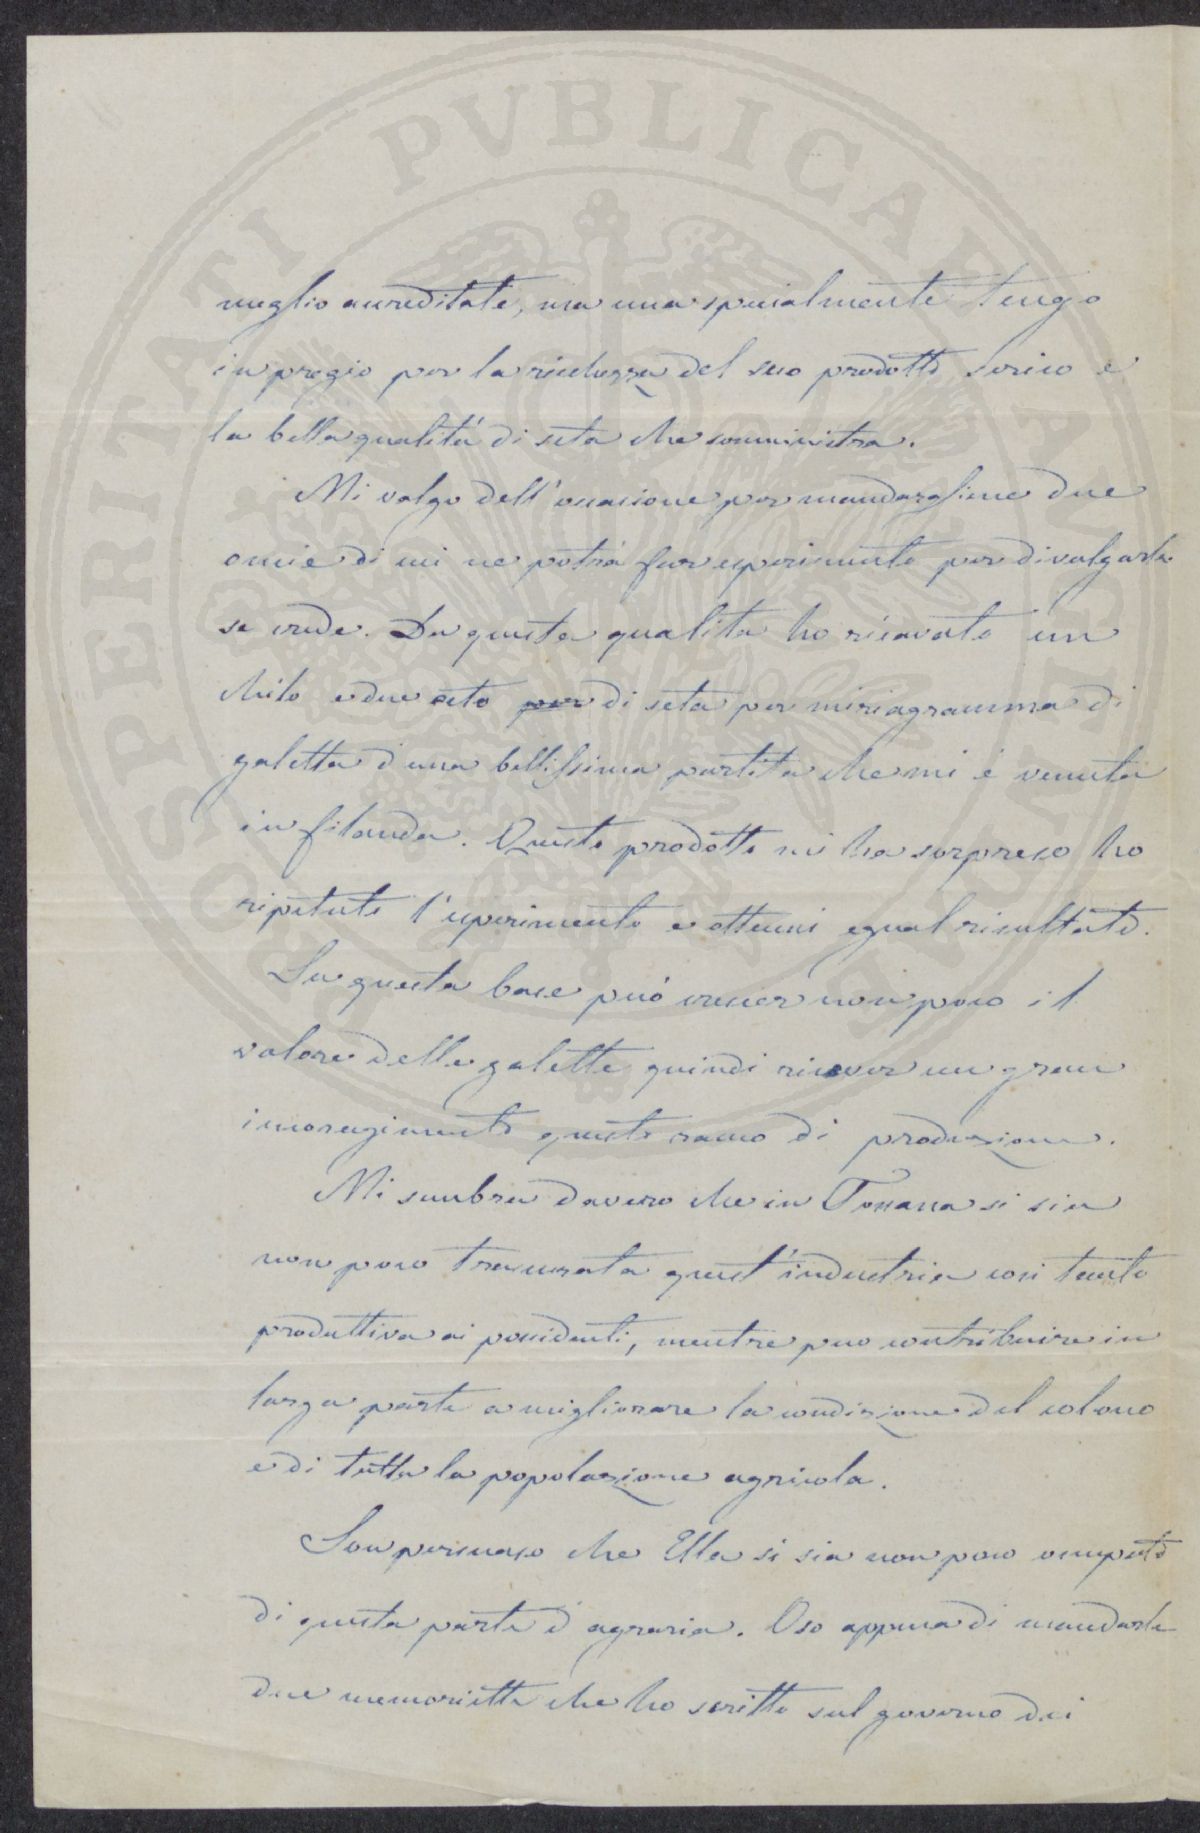 meglio accreditate, ma una specialmente tengo
in pregio per la ricchezza del suo prodotto serico e
la bella qualità di seta che somministra.
Mi valgo dell'occasione per mandargliene due
oncie di cui ne potrà far esperimento per divulgarla
se crede. Da questa qualità ho ricavato un
chilo e due eto per di seta per miriagramma di
galetta d una bellissima partita che mi è venuta
in filanda. Questo prodotto mi ha sorpreso ho
ripetuto l'esperimento e ottenni egual risultato.
Su questa base può crescer non poco il
valore delle galette quindi ricever un gran
incoragimento questo ramo di produzione.
Mi sembra davero che in Toscana si sia
non poco trascurata quest'industria così tanto
produttiva ai possidenti, mentre può contribuire in
larga parte a migliorare la condizione del colono
e di tutta la popolazione agricola.
Son persuaso che Ella si sia non poco occupato
di questa parte d agraria. Oso appena di mandarle
due memoriette che ho scritto sul governo dei
PROSPERITATI PVBLICAE AVGENDAE